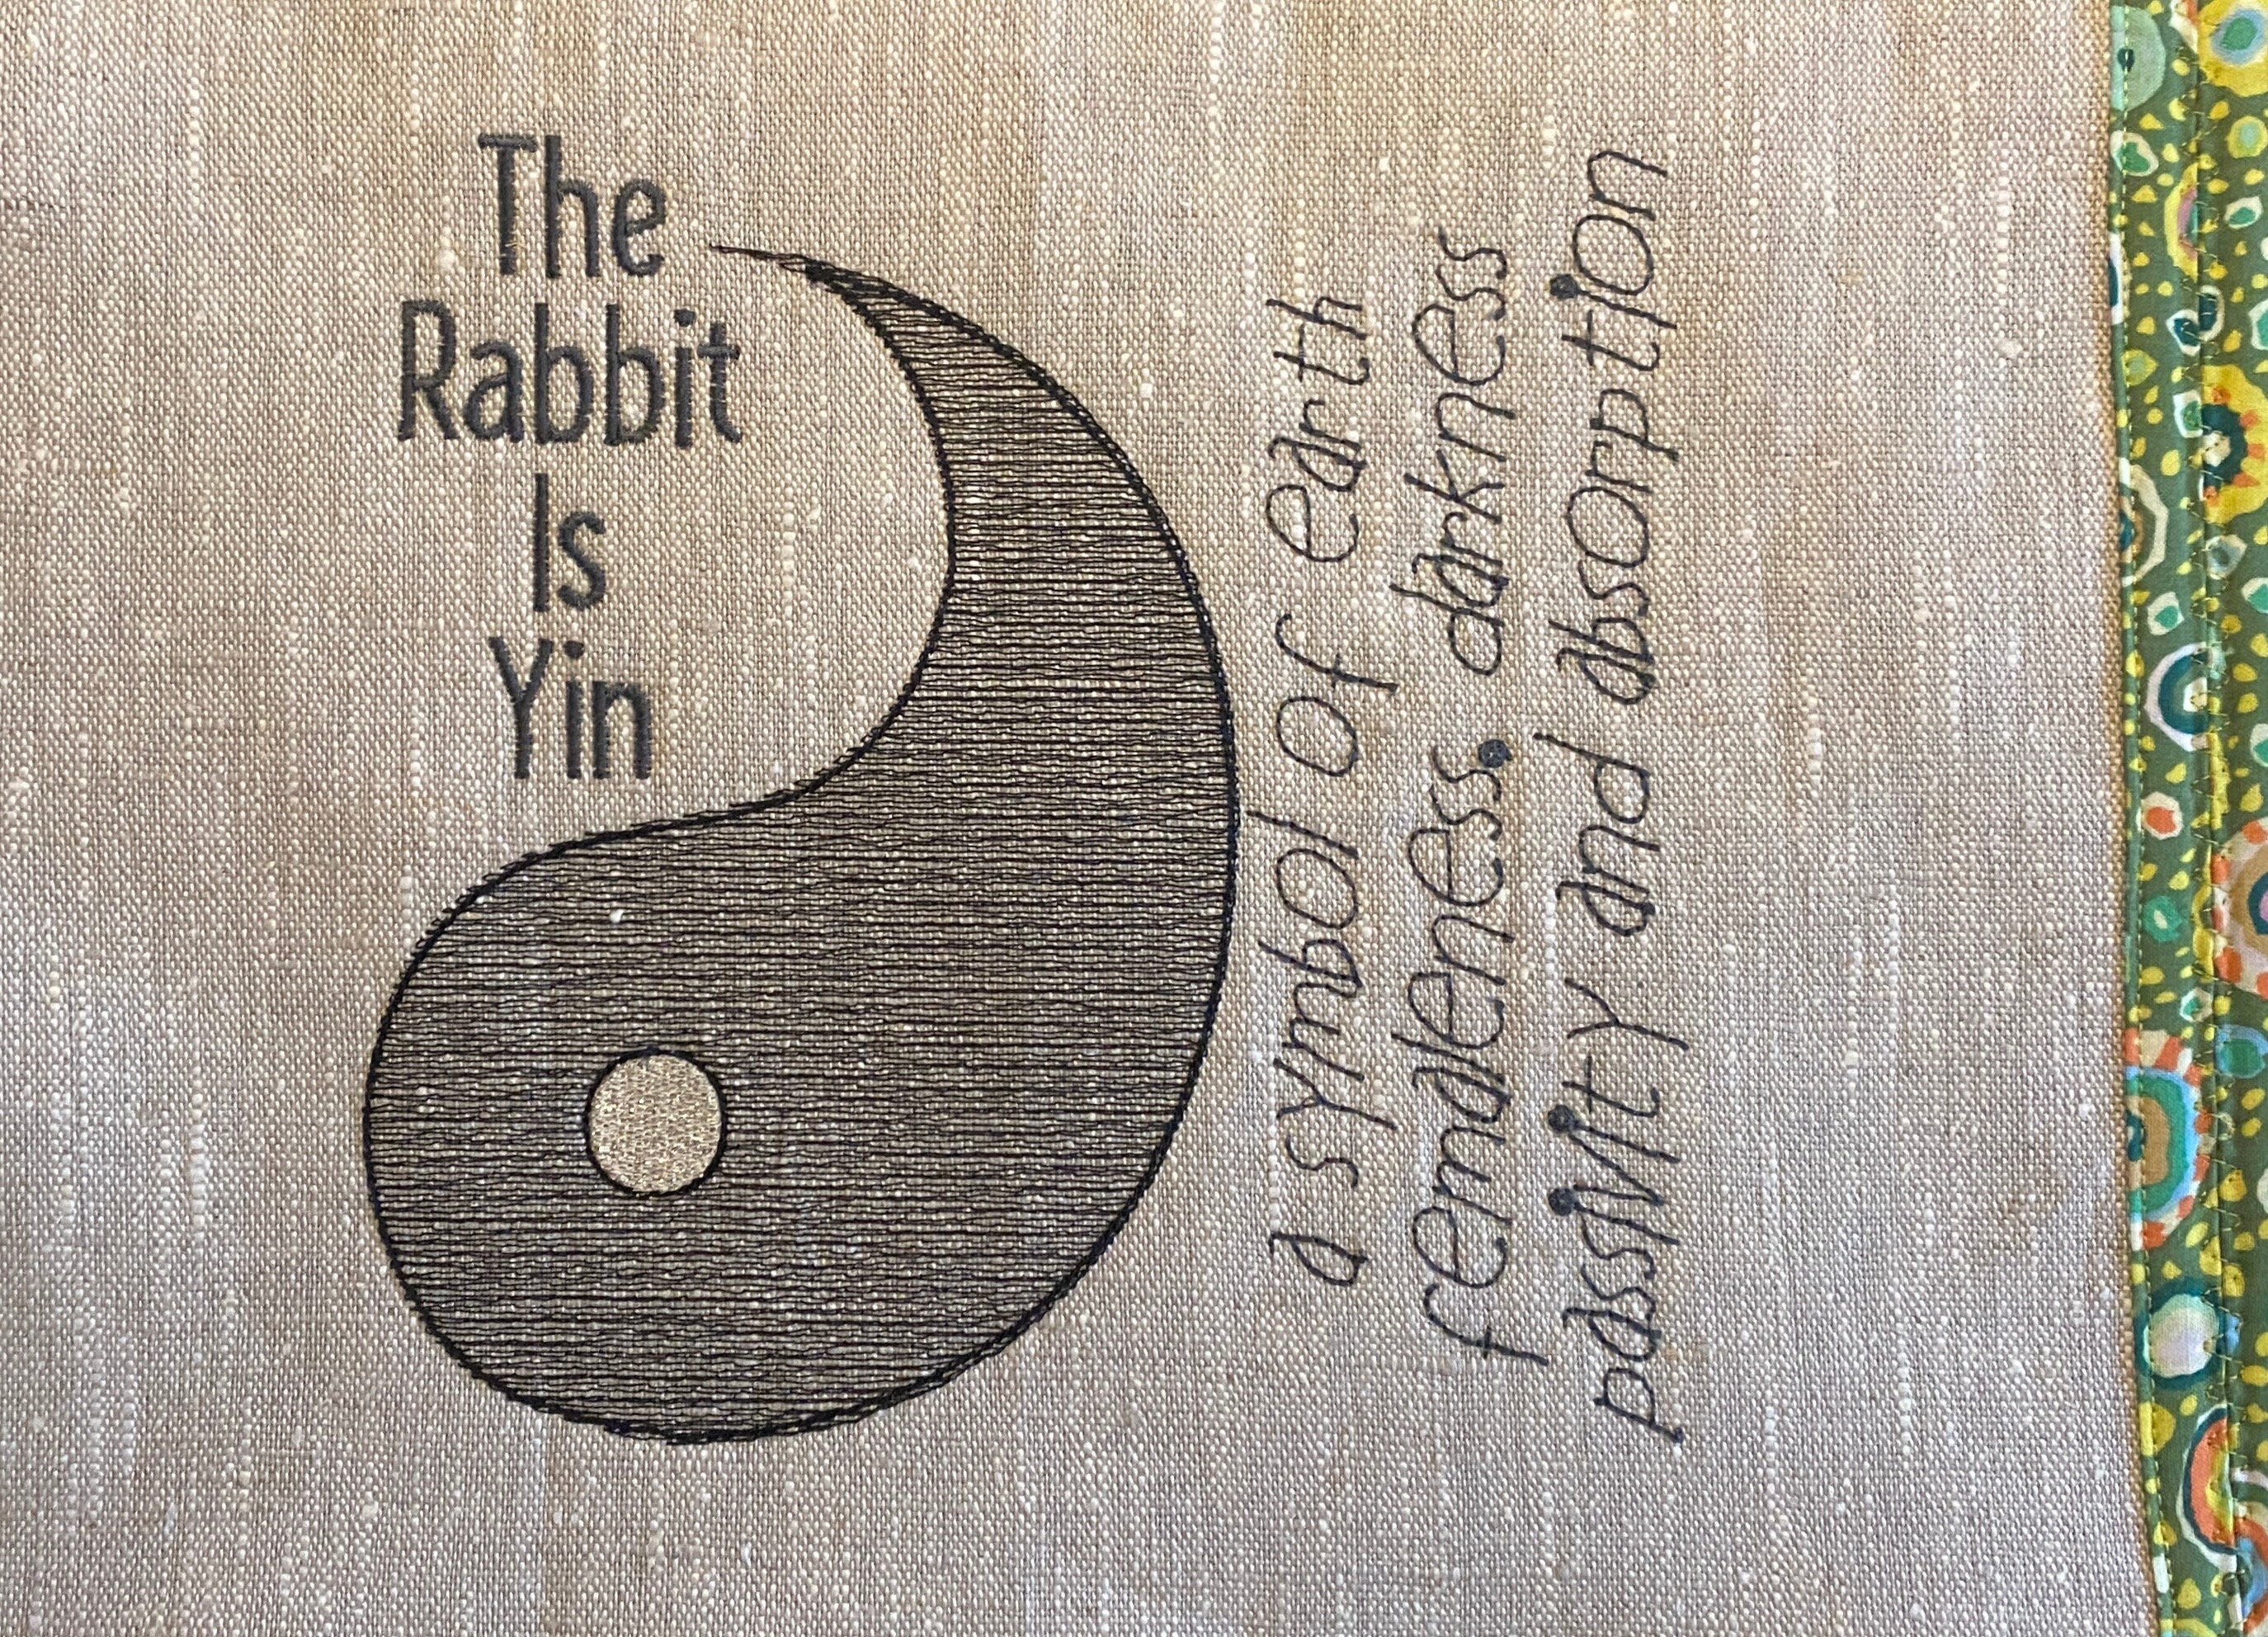 The
Rabbit
Is
Yin
a symbol of earth
femaleness. darkness
passivity and absorption